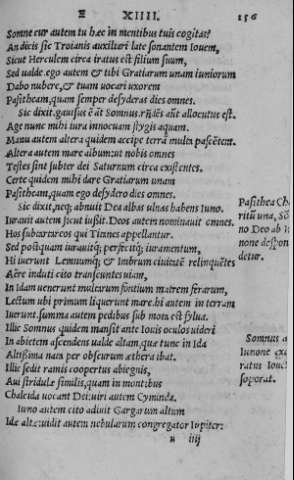 Ξ XIIII. 156
Somne cur autem tu hæc in mentibus tuis cogitas?
An dicis sic Troianis auxiliari late sonantem Iouem,
Sicut Herculem circa iratus est filium suum,
Sed ualde. ego autem & tibi Gratiarum unam iuniorum
Dabo nubere, & tuam uocari uxorem
Pasitheam, quam semper desyderas dies omnes.
Sic dixit. gauisus ē āt Somnus. rñdēs aūt allocutus est.
Age nunc mihi iura innocuam stygis aquam.
Manu autem altera quidem accipe terrā multa pascētem.
Altera autem mare album: ut nobis omnes
Testes sint subter dei Saturnum circa existentes.
Certe quidem mihi dare Gratiarum unam
Pasitheam, quam ego desydero dies omnes.
Sic dixit, neq; abnuit Dea albas ulnas habens Iuno.
Iurauit autem sicut iussit. Deos autem nominauit omnes.
Hos subtartareos qui Titanes appellantur.
Sed postquam iurauitq; perfecitq; iuramentum,
Hi iuerunt Lemnumq; & Imbrum ciuitatē relinquētes
Aere induti cito transeuntes uiam,
In Idam uenerunt multarum fontium matrem ferarum,
Lectum ubi primum liquerunt mare. hi autem in terram
Iuerunt. summa autem pedibus sub mota est sylua.
Illic Somnus quidem mansit ante Iouis oculos uideri
In abietem ascendens ualde altam, quæ tunc in Ida
Altissima nata per obscurum æthera ibat.
Illic sedit ramis coopertus abiegnis,
Aui stridulæ similis, quam in montibus
Chalcida uocant Dei: uiri autem Cymindā.
Iuno autem cito adiuit Gargarum altum
Idæ altæ: uidit autem nebularum congregator Iupiter:
u iiij
Pasithea Cha
ritū una, Sō
no Deo ab Iu
none despon
detur.
Somnus a
Iunone ex
ratus Ioue
soporat.